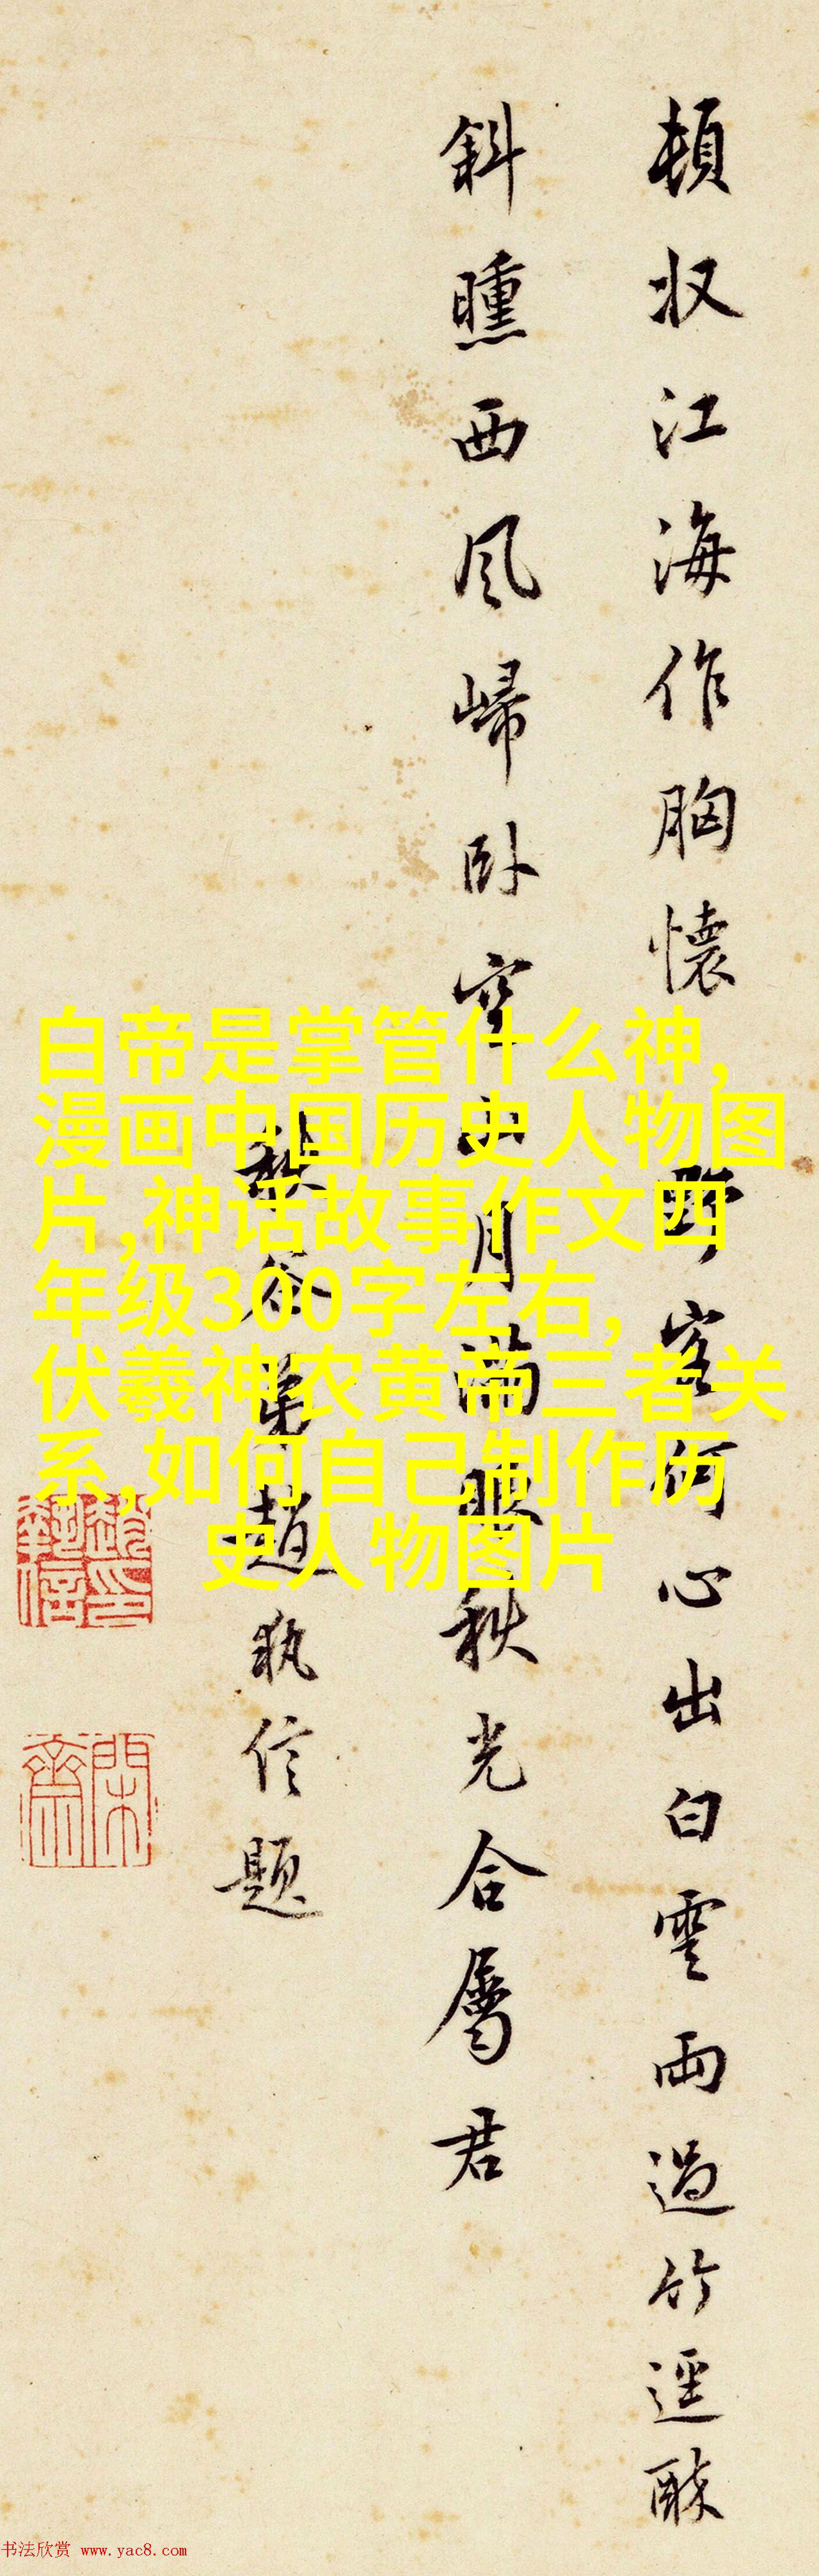 頓收江海作胸懷 野客何心出白雲雨過竹逕醉
斜曛西風歸卧空山月滿眼秋光合屬君
秋谷弟趙執信題
白帝是掌管什么神,
漫画中国历史人物图
片,神话故事作文四
年级300字左右,
伏羲神农黄帝三者关
系,如何自己制作历
史人物图片
书法欣赏 www.yac8.com